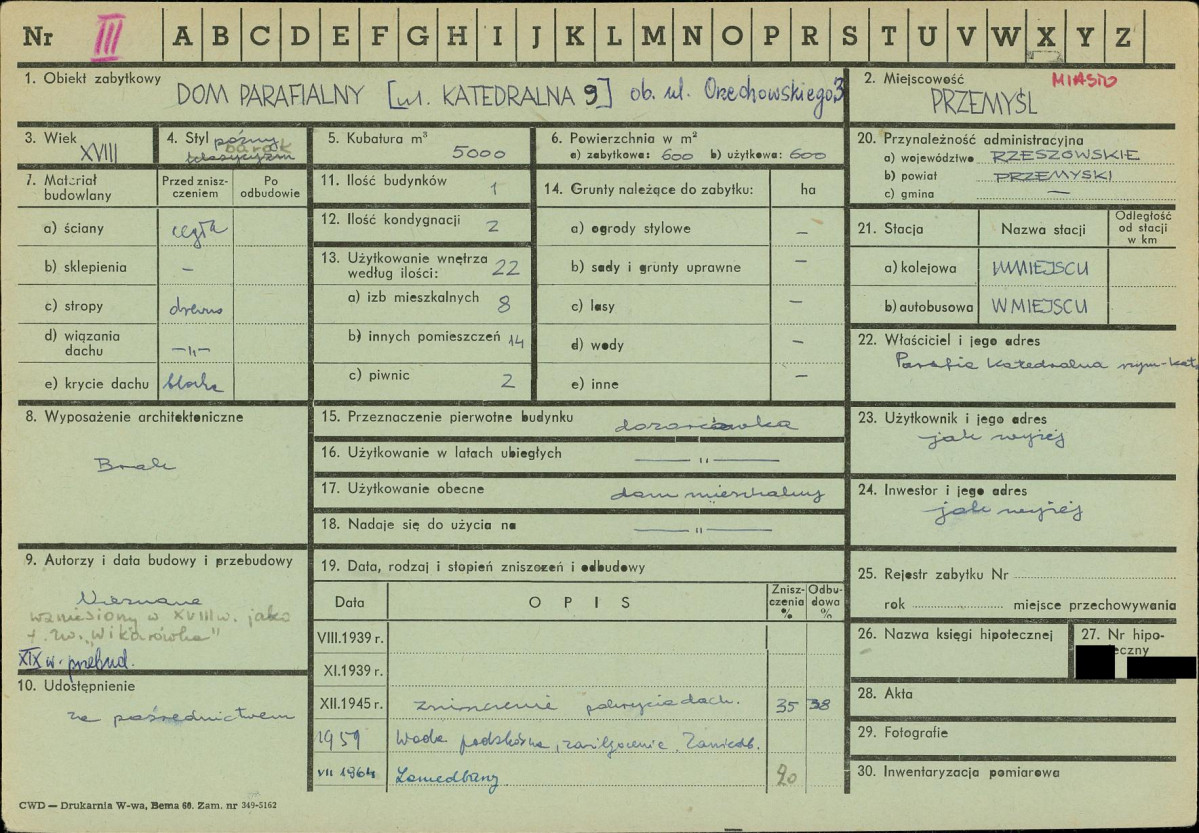 Nr III A B C D E F G H I J K L M N O P R S T U V W X Y Z
1. Obiekt zabytkowy
DOM PARAFIALNY [ul. KATEDRALNA 9] ob. ul. Orzechowskiego 3
2. Miejscowość MIASTO
PRZEMYŚL
3. Wiek
XVIII
4. Styl późny
barok
klasycyzm
5. Kubatura m³
5000
6. Powierzchnia w m²
a) zabytkowa: 600 b) użytkowa: 600
20. Przynależność administracyjna
a) województwo RZESZOWSKIE
b) powiat PRZEMYSKI
c) gmina —
7. Materiał budowlany
Przed zniszczeniem
Po odbudowie
a) ściany cegła
b) sklepienia –
c) stropy drewno
d) wiązania dachu —„—
e) krycie dachu blacha
11. Ilość budynków 1
12. Ilość kondygnacji 2
13. Użytkowanie wnętrza według ilości: 22
a) izb mieszkalnych 8
b) innych pomieszczeń 14
c) piwnic 2
14. Grunty należące do zabytku: ha
a) ogrody stylowe –
b) sady i grunty uprawne –
c) lasy –
d) wody –
e) inne –
21. Stacja
Nazwa stacji
Odległość od stacji w km
a) kolejowa W MIEJSCU
b) autobusowa W MIEJSCU
22. Właściciel i jego adres
Parafia Katedralna rzym-kat
8. Wyposażenie architektoniczne
Brak
15. Przeznaczenie pierwotne budynku
16. Użytkowanie w latach ubiegłych —„—
17. Użytkowanie obecne dom mieszkalny
18. Nadaje się do użycia na —„—
23. Użytkownik i jego adres
jak wyżej
24. Inwestor i jego adres
jak wyżej
9. Autorzy i data budowy i przebudowy
Nieznane
wzniesiony w XVIII w. jako
t. zw. "Wikarówka"
XIX w. przebud.
10. Udostępnienie
za pośrednictwem
19. Data, rodzaj i stopień zniszczeń i odbudowy
Data
O P I S
Zniszczenia %
Odbudowa %
VIII.1939 r.
XI.1939 r.
XII.1945 r. zniszczenie pokrycia dach. 35 38
1959 Woda podskórna, zawilgocenie. Zaniedb.
VII 1964 Zaniedbany 20
25. Rejestr zabytku Nr
rok miejsce przechowywania
26. Nazwa księgi hipotecznej
27. Nr hipoteczny
28. Akta
29. Fotografie
30. Inwentaryzacja pomiarowa
CWD — Drukarnia W-wa, Bema 60. Zam. nr 349-5162